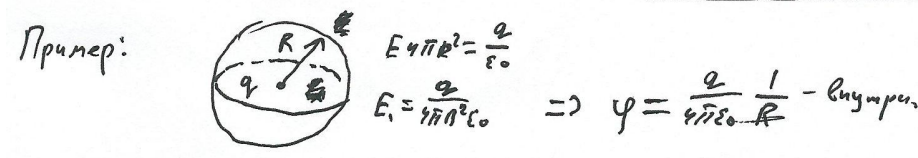 Пример:
R
q
E 4πR² = q/ε₀
E₁ = q/4πR²ε₀ => φ = q/4πε₀ 1/R - внутри.